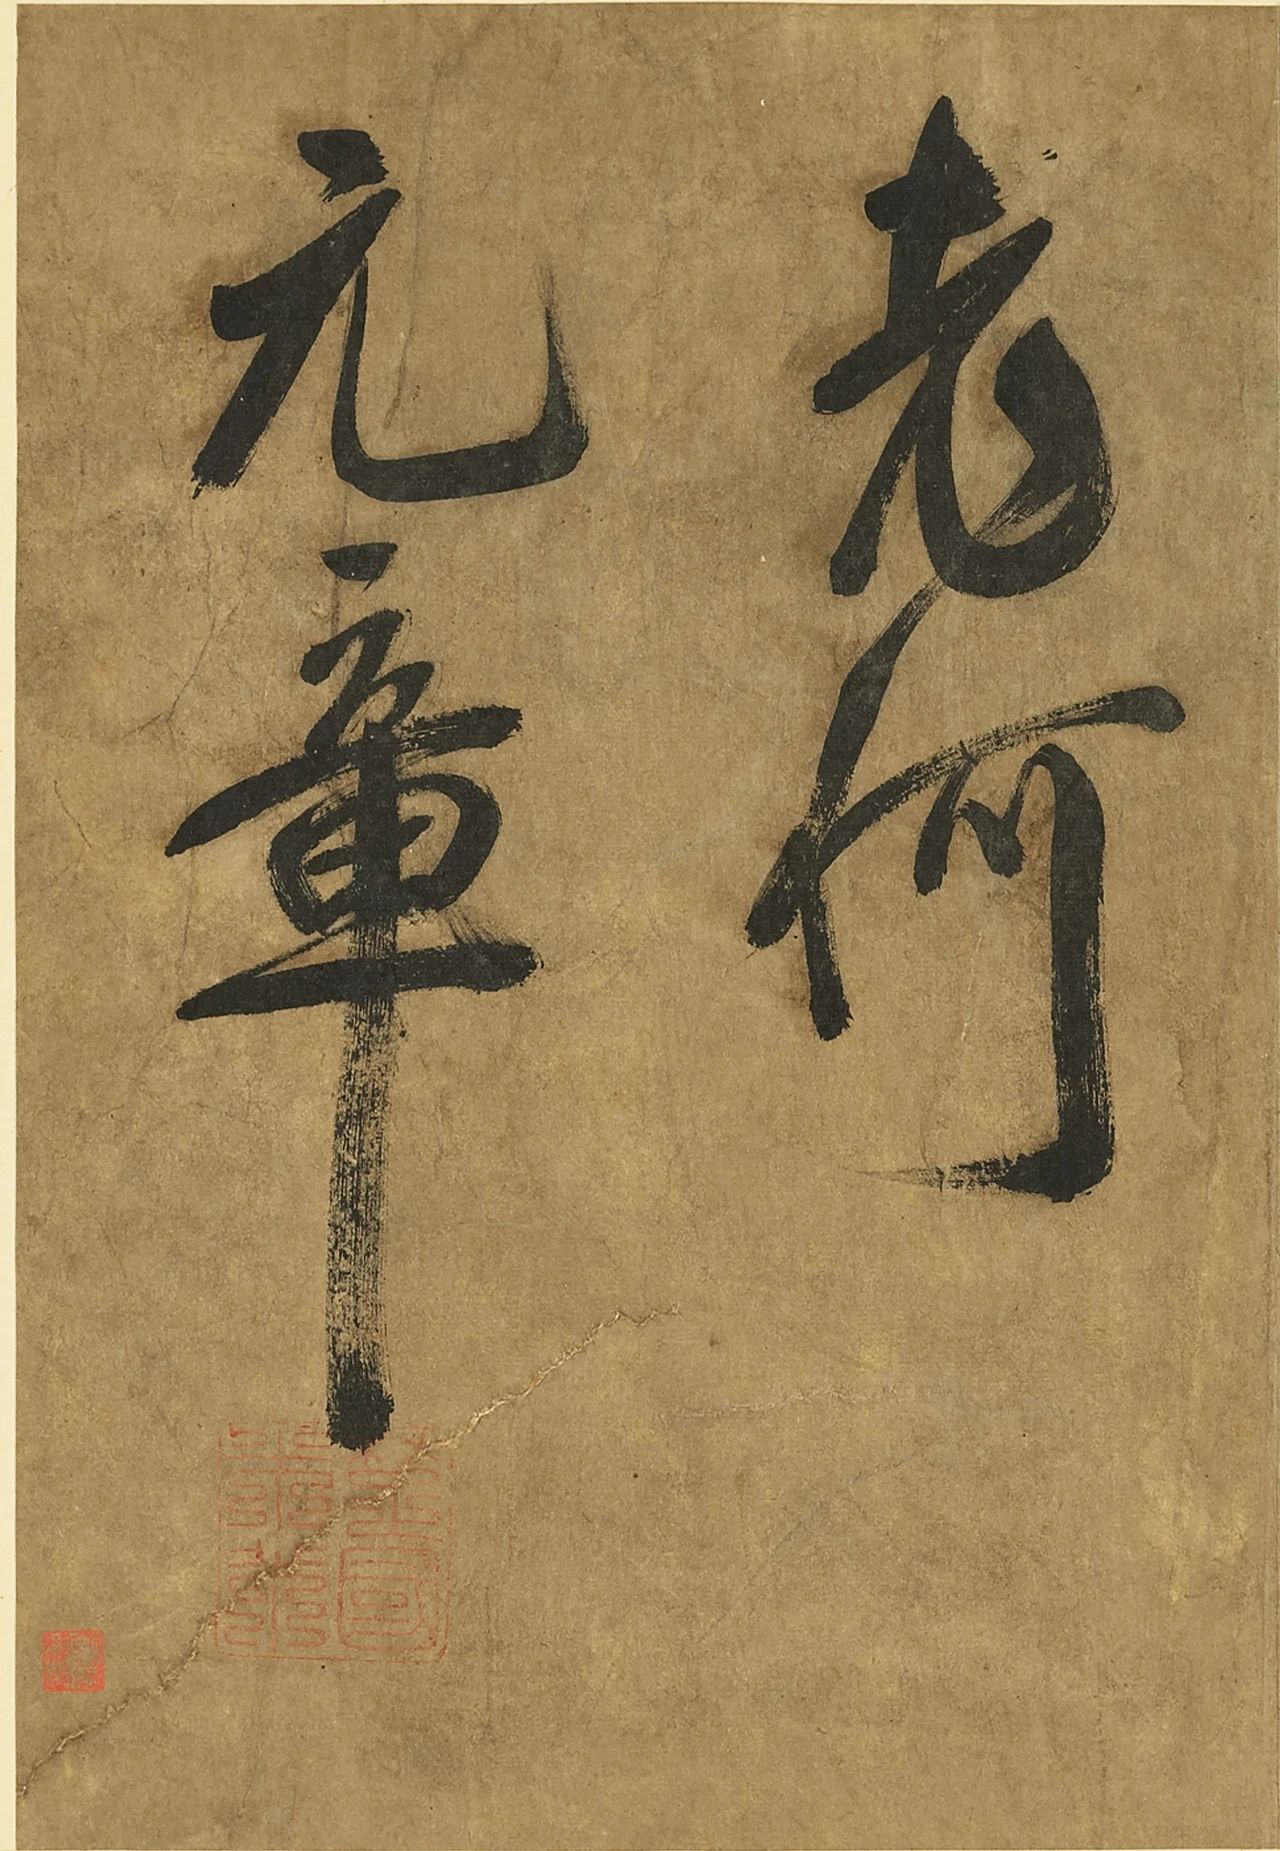 老何
元章